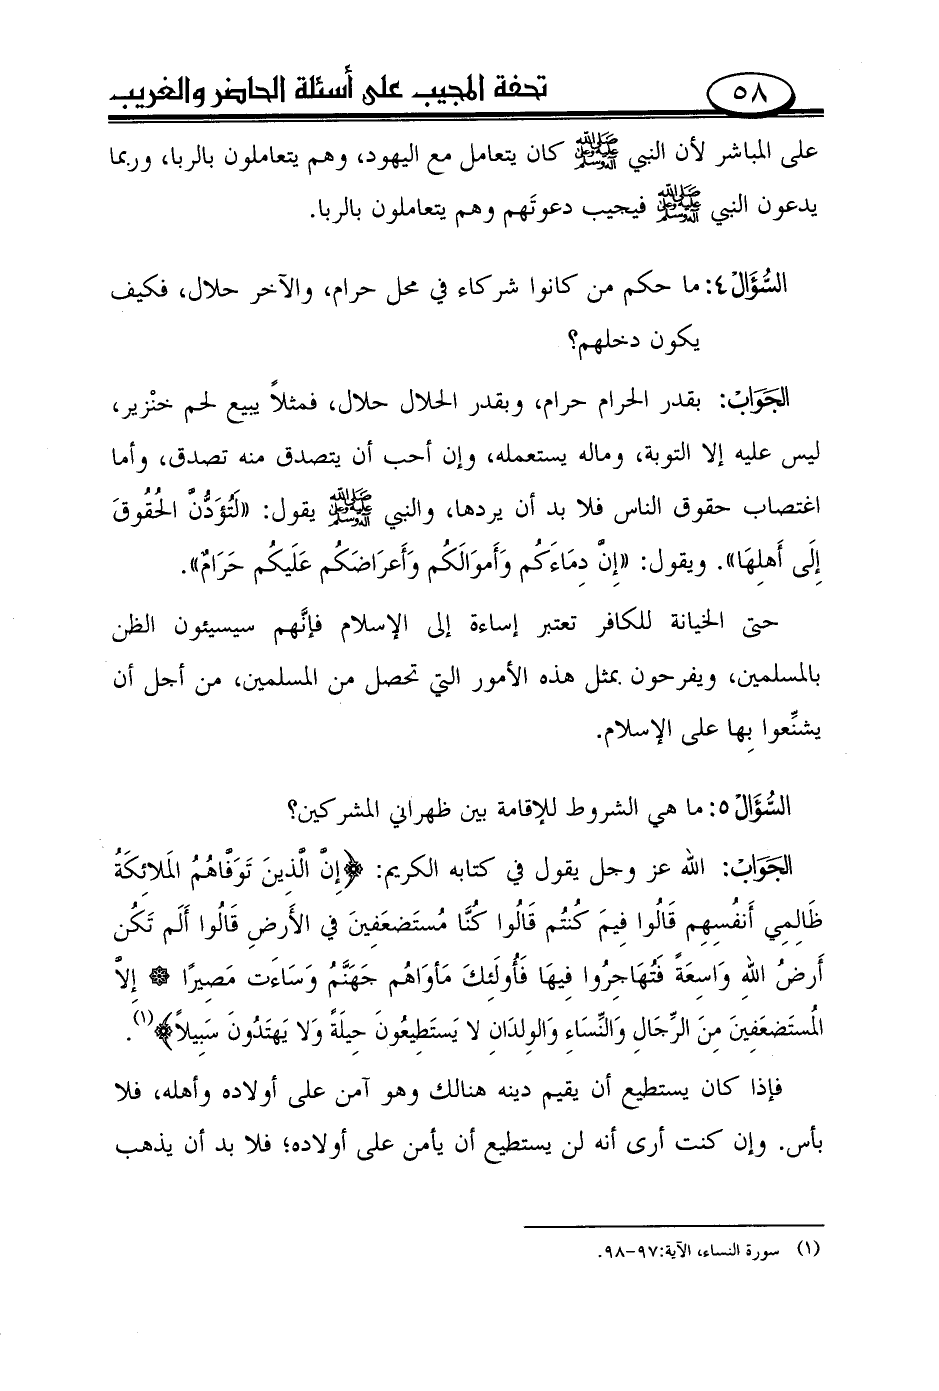 ٥٨
تحفة المجيب على أسئلة الحاضر والغريب
على المباشر لأن النبي ﷺ كان يتعامل مع اليهود، وهم يتعاملون بالربا، وربما
يدعون النبي ﷺ فيجيب دعوتَهم وهم يتعاملون بالربا.
السُّؤَالْ ٤: ما حكم من كانوا شركاء في محل حرام، والآخر حلال، فكيف
يكون دخلهم؟
الجَوَابْ: بقدر الحرام حرام، وبقدر الحلال حلال، فمثلاً يبيع لحم خنْزير،
ليس عليه إلا التوبة، وماله يستعمله، وإن أحب أن يتصدق منه تصدق، وأما
اغتصاب حقوق الناس فلا بد أن يردها، والنبي ﷺ يقول: «لَتُؤَدُّنَّ الحُقُوقَ
إِلَى أَهلِهَا». ويقول: «إِنَّ دِمَاءَكُم وَأَموَالَكُم وَأَعرَاضَكُم عَلَيكُم حَرَامٌ».
حتى الخيانة للكافر تعتبر إساءة إلى الإسلام فإنَّهم سيسيئون الظن
بالمسلمين، ويفرحون بمثل هذه الأمور التي تحصل من المسلمين، من أجل أن
يشنِّعوا بِها على الإسلام.
السُّؤَالْ ٥: ما هي الشروط للإقامة بين ظهراني المشركين؟
الجَوَابْ: الله عز وجل يقول في كتابه الكريم: ﴿إِنَّ الَّذِينَ تَوَفَّاهُمُ المَلائِكَةُ
ظَالِمِي أَنفُسِهِم قَالُوا فِيمَ كُنتُم قَالُوا كُنَّا مُستَضعَفِينَ فِي الأَرضِ قَالُوا أَلَم تَكُن
أَرضُ اللهِ وَاسِعَةً فَتُهَاجِرُوا فِيهَا فَأُولَئِكَ مَأوَاهُم جَهَنَّمُ وَسَاءَت مَصِيرًا ۞ إِلاَّ
المُستَضعَفِينَ مِنَ الرِّجَالِ وَالنِّسَاءِ وَالوِلدَانِ لا يَستَطِيعُونَ حِيلَةً وَلا يَهتَدُونَ سَبِيلاً﴾(١).
فإذا كان يستطيع أن يقيم دينه هنالك وهو آمن على أولاده وأهله، فلا
بأس. وإن كنت أرى أنه لن يستطيع أن يأمن على أولاده؛ فلا بد أن يذهب
(١) سورة النساء، الآية:٩٧-٩٨.